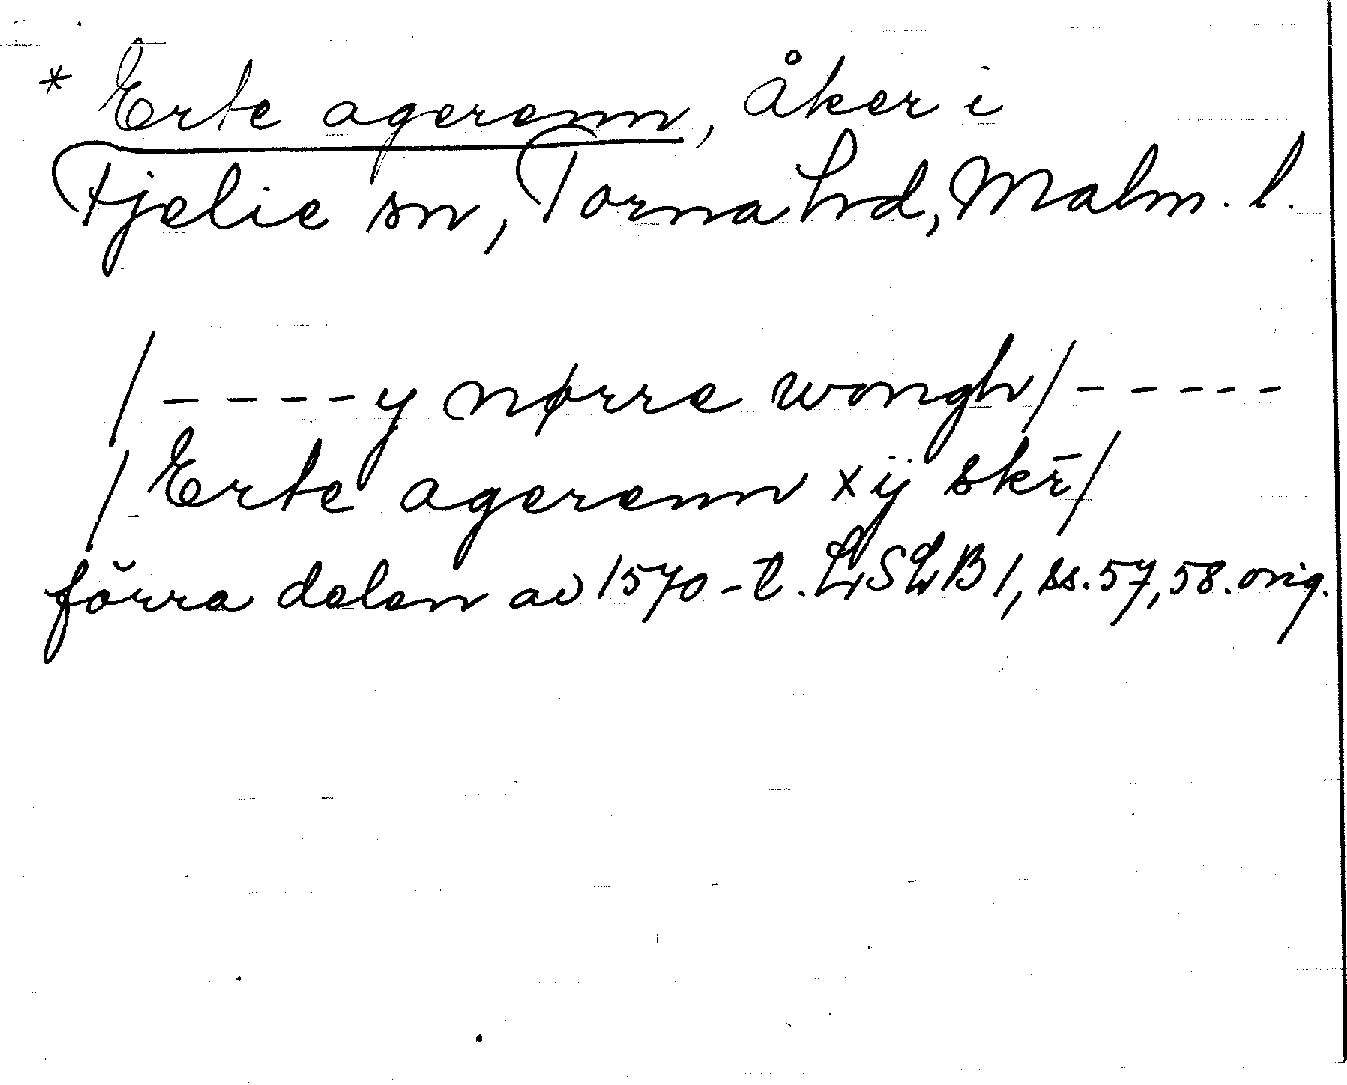 * Erte agerenn, åker i
Fjelie sn, Torna hd, Malm. l.
/----y nørre wongh/-----
/Erte agerenn xÿ skr̄/
förra delen av 1570-t. LSLB 1, ss. 57, 58. orig.